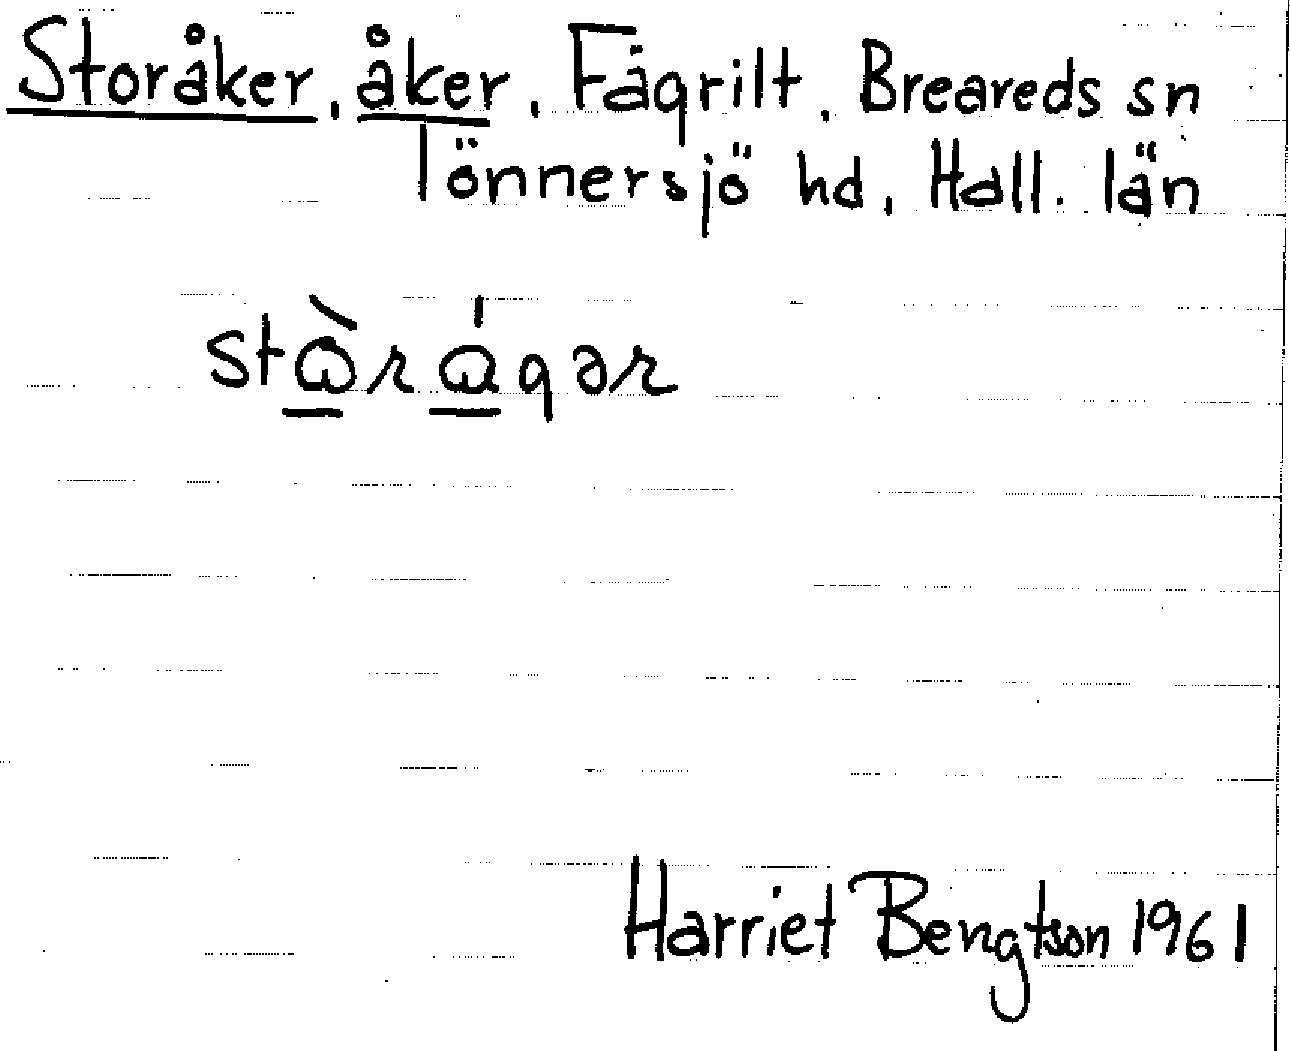 Storåker, åker, Fägrilt, Breareds sn
Tönnersjö hd, Hall. län
Harriet Bengtson 1961